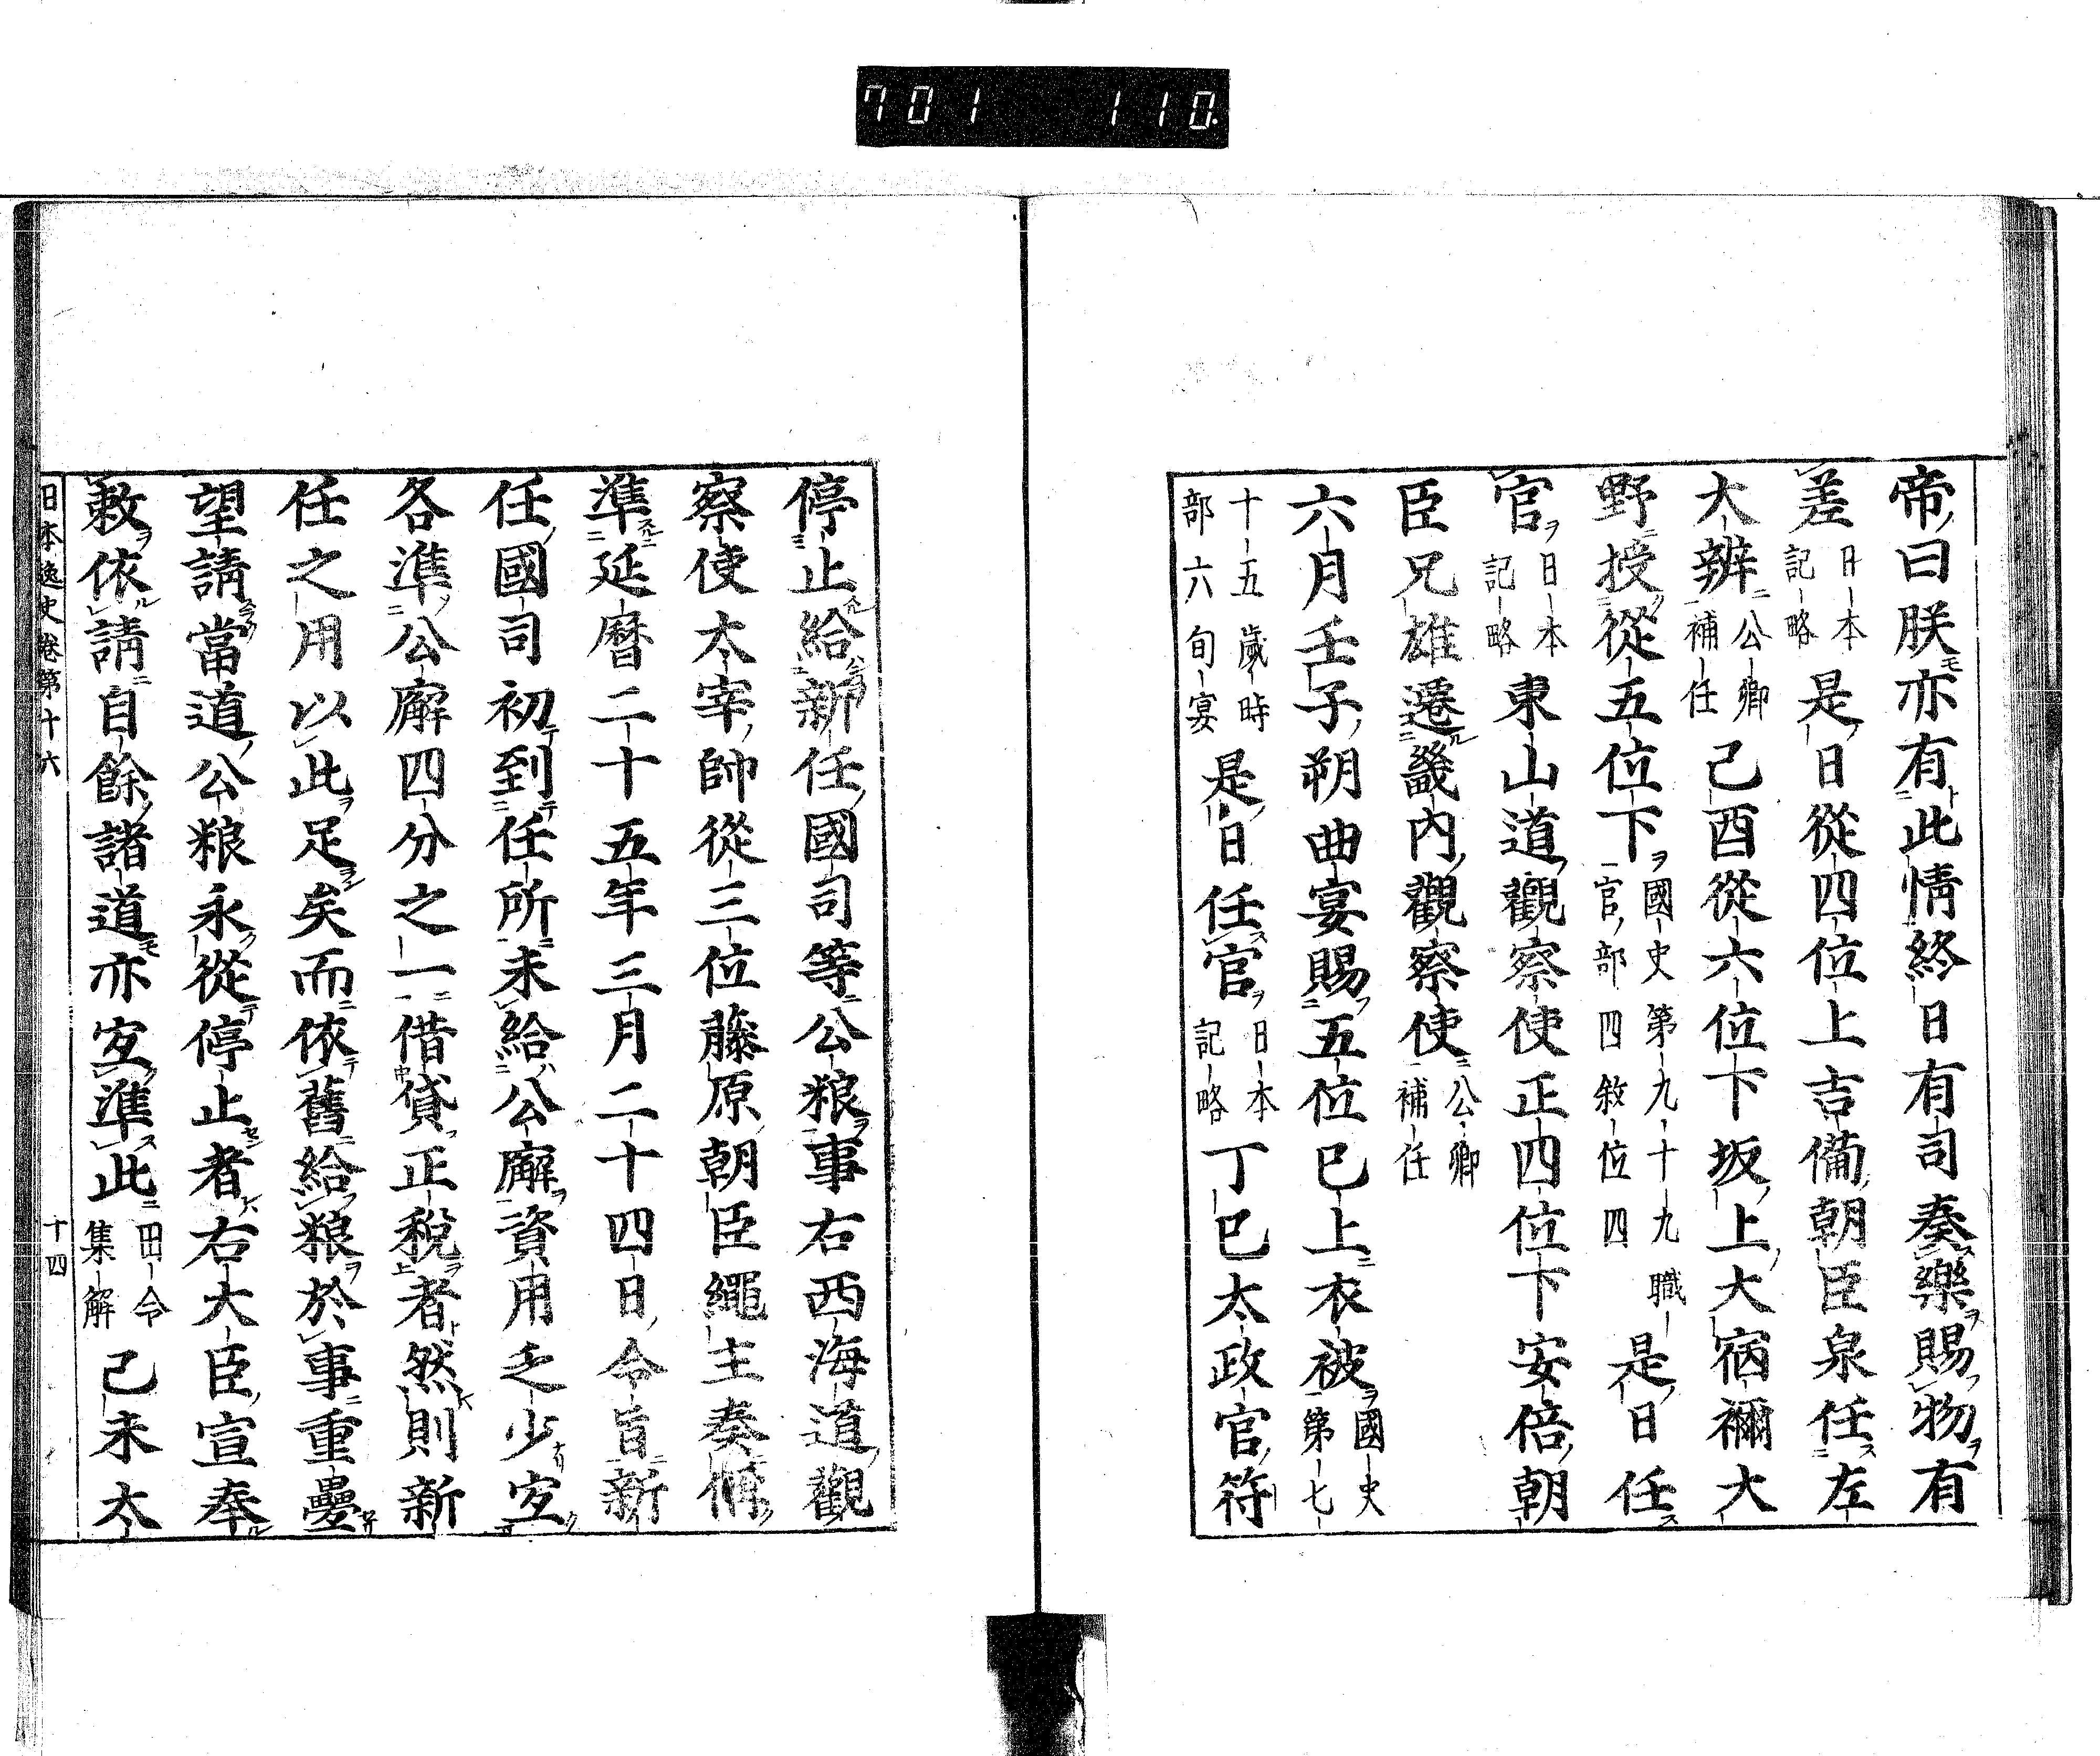 701 110.
帝曰朕亦有此情終日有司奏樂賜物有
差日本記略是日從四位上吉備朝臣泉任左
大辨公卿補任己酉從六位下坂上大宿禰大
野授從五位下國史第九十九職官部四敘位四是日任
官日本記略東山道觀察使正四位下安倍朝
臣兄雄遷畿內觀察使公卿補任
六月壬子朔曲宴賜五位已上衣被國史第七
十五歲時部六旬宴是日任官日本記略丁巳太政官符
停止給新任國司等公粮事右西海道觀
察使太宰帥從三位藤原朝臣繩主奏偁
準延曆二十五年三月二十四日令旨新
任國司初到任所未給公廨資用乏少宐
各準公廨四分之一借貸正稅者然則新
任之用以此足矣而依舊給粮於事重疊
望請當道公粮永從停止者右大臣宣奉
敕依請自餘諸道亦宐準此田令集解己未太
日本逸史卷第十六 十四